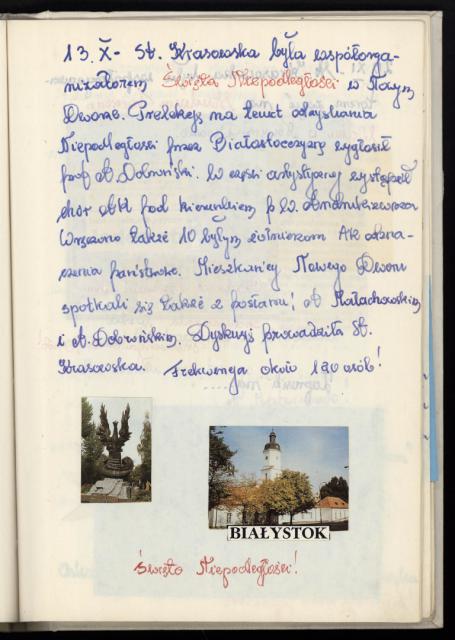 13. X- St. Krasowska była współorga-
nizatorem Święta Niepodległości w Nowym
Dworze. Prelekcję na temat odzyskania
Niepodległości przez Białostocczyznę wygłosił
prof A. Dobroński. W części artystycznej wystąpił
chór AM pod kierunkiem p.
Wręczono także 10 byłym żołnierzom AK odzna-
czenia państwowe. Mieszkańcy Nowego Dworu
spotkali się także z posłami: A Małachowskim
i A. Dobrońskim. Dyskusję prowadziła St.
Krasowska. Frekwencja około 130 osób!
BIAŁYSTOK
Święto Niepodległości!